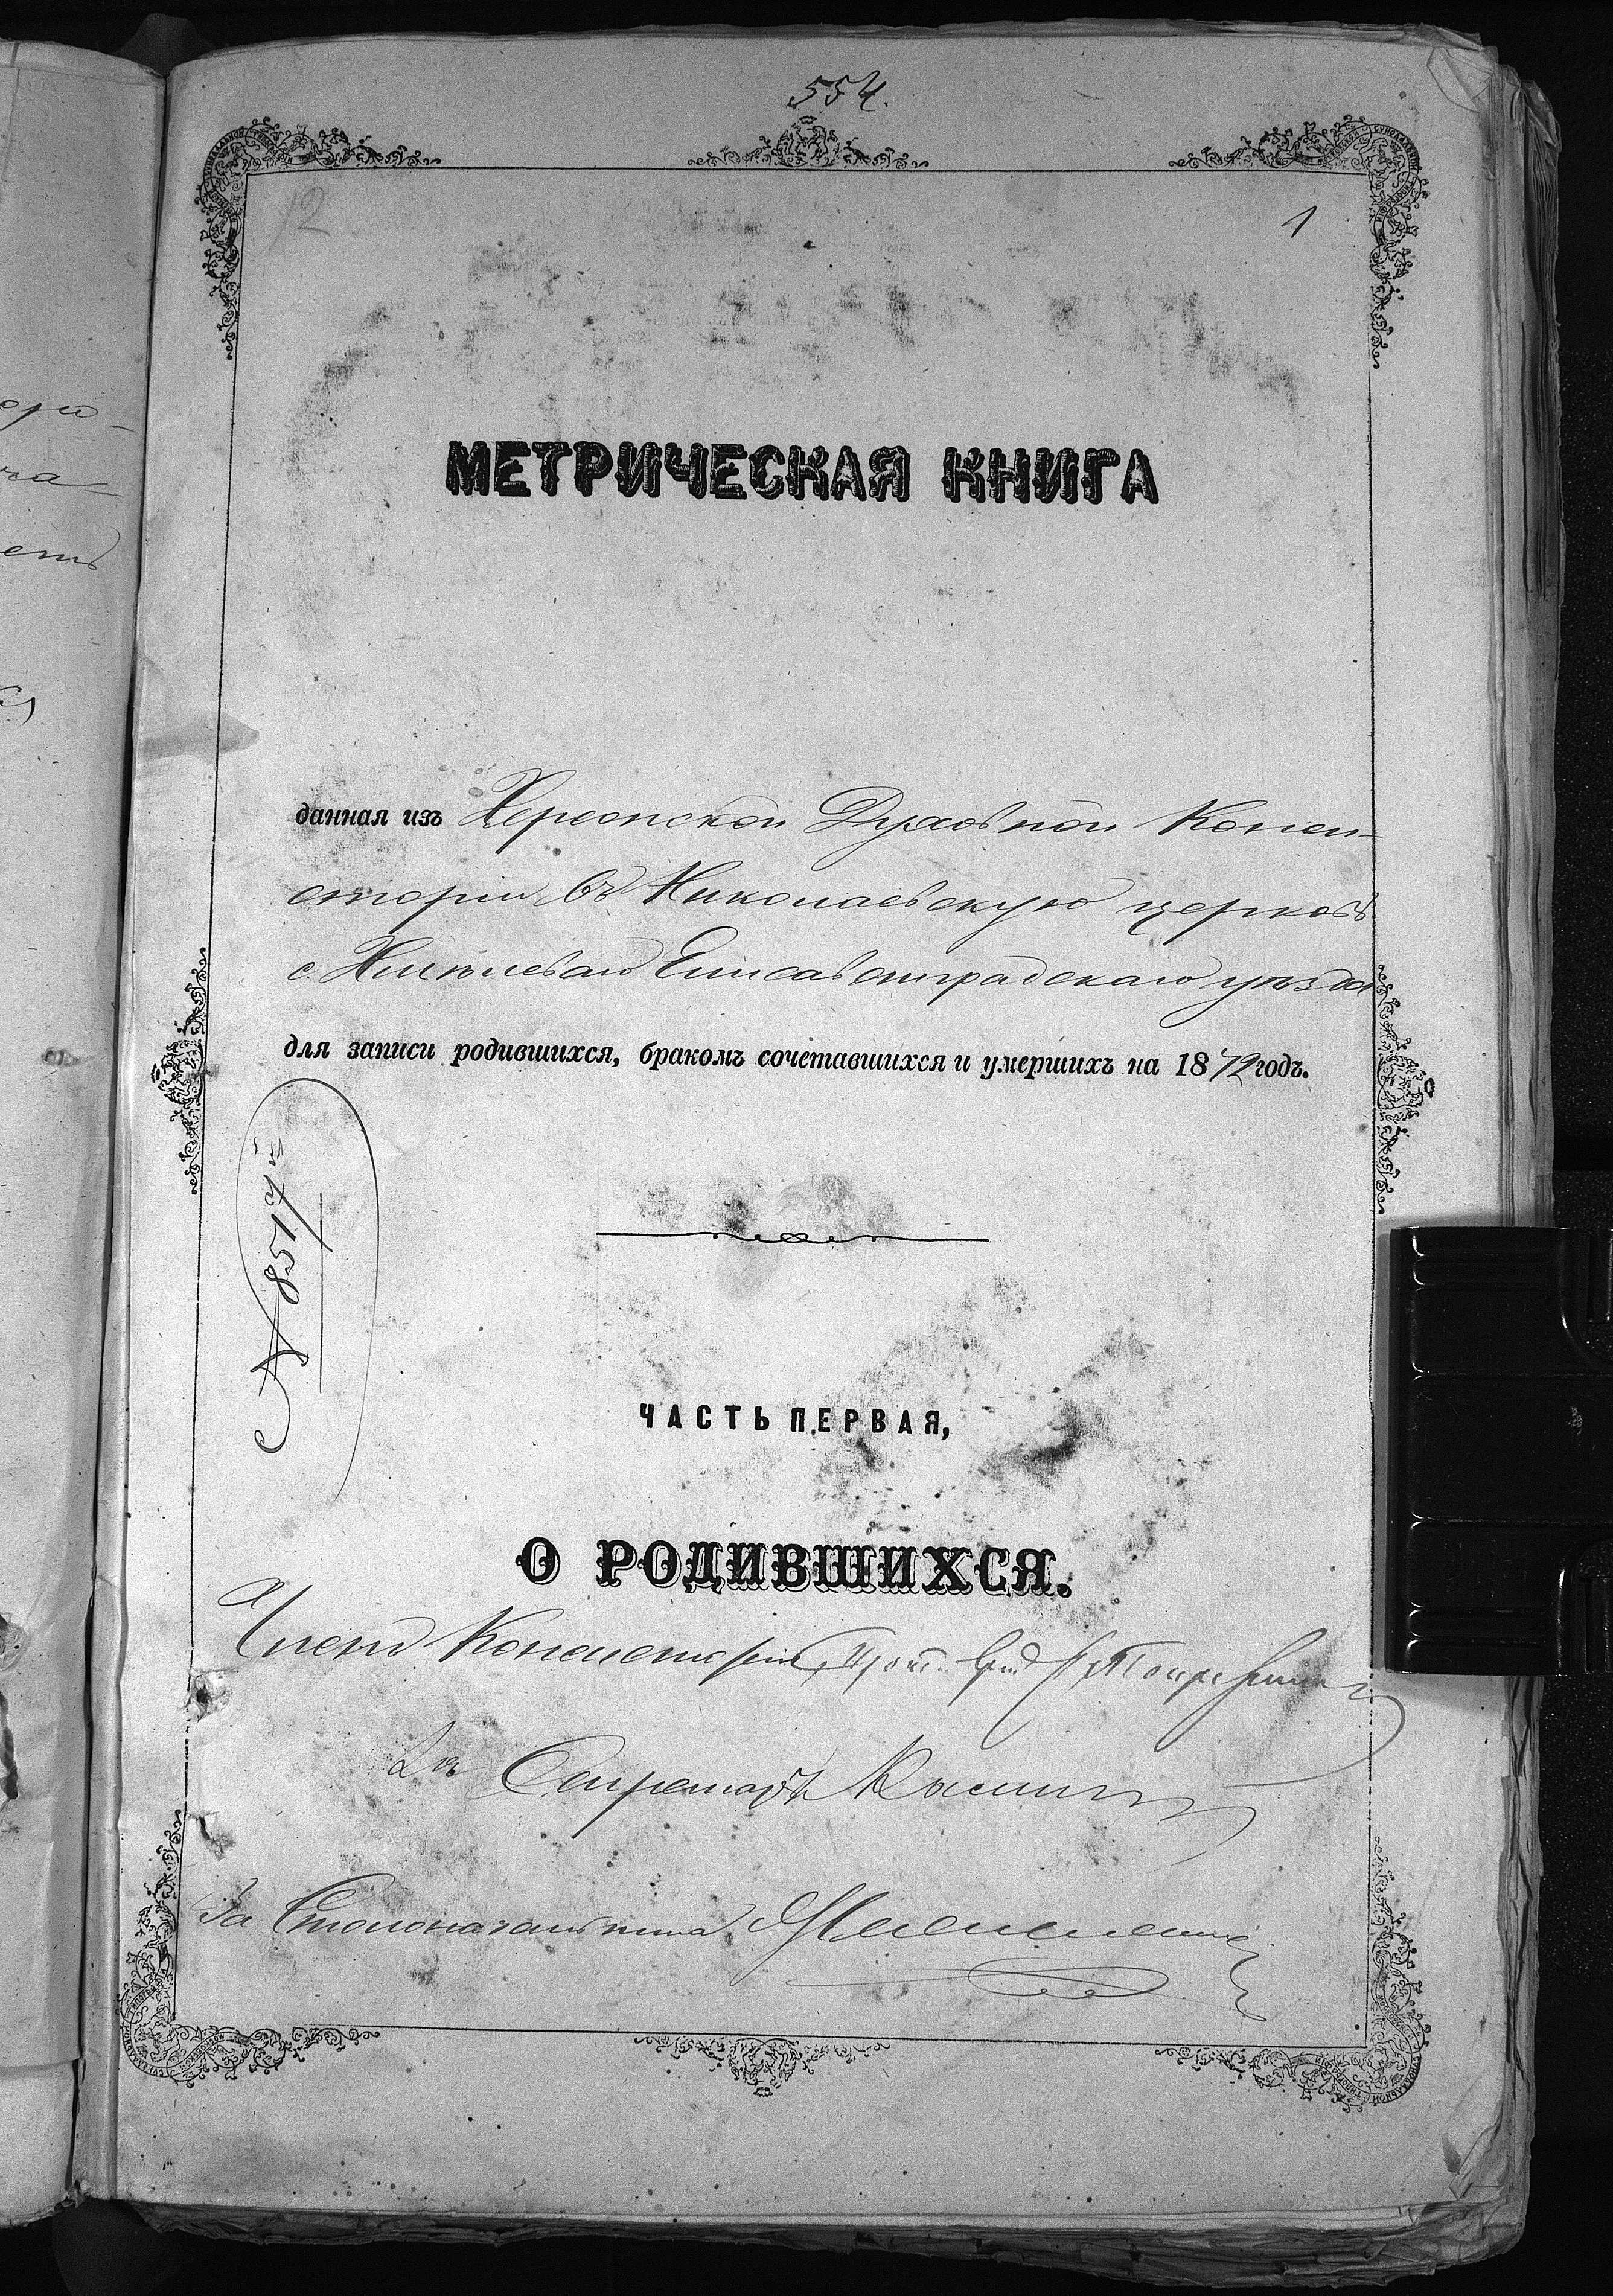 554.
12
1
МЕТРИЧЕСКАЯ КНИГА
данная изъ Херсонской Духовной Конси-
сторіи въ Николаевскую церковь
с. Елисаветградскаго уѣзда
для записи родившихся, бракомъ сочетавшихся и умершихъ на 1872 годъ.
№ 851
ЧАСТЬ ПЕРВАЯ,
О РОДИВШИХСЯ.
Членъ Консисторіи
Секретарь
За Столоначальника